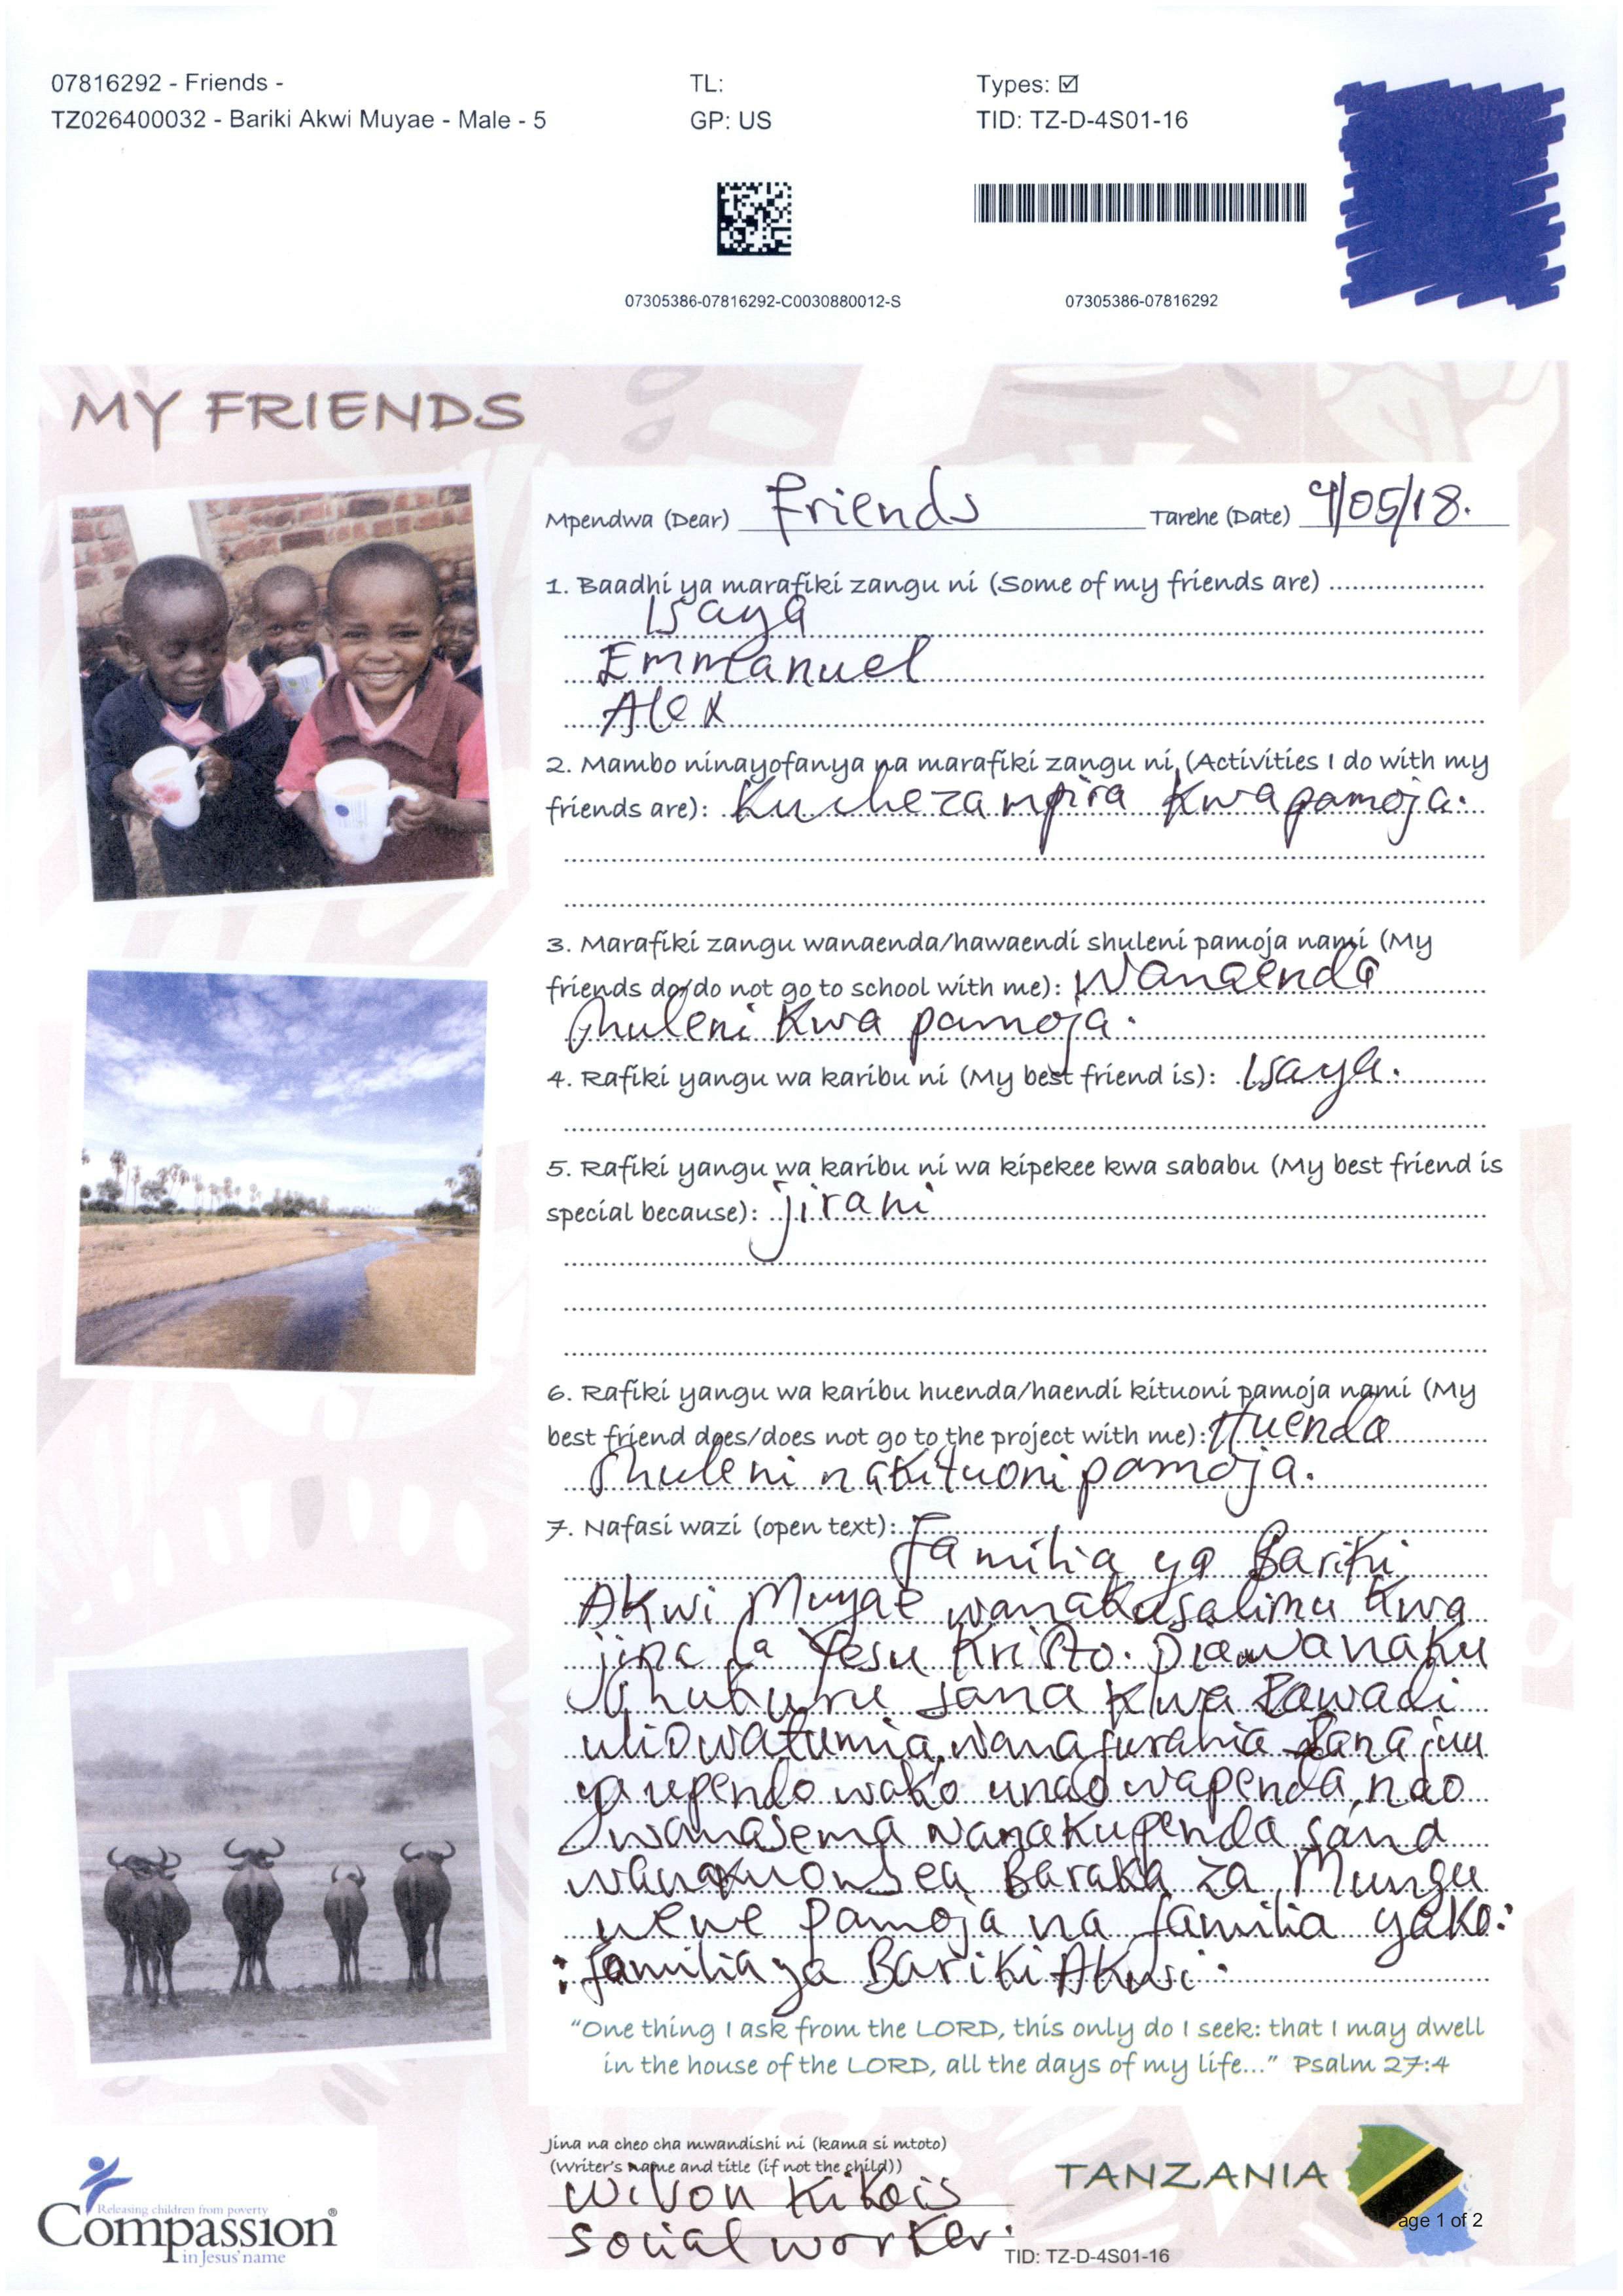 07816292 - Friends -
TL:
Types: ☑
TZ026400032 - Bariki Akwi Muyae - Male - 5
GP: US
TID: TZ-D-4S01-16
07305386-07816292-C0030880012-S
07305386-07816292
MY FRIENDS
Mpendwa (Dear) Friends Tarehe (Date) 9/05/18.
1. Baadhi ya marafiki zangu ni (Some of my friends are)
Isaya
Emmanuel
Alex
2. Mambo ninayofanya na marafiki zangu ni (Activities I do with my
friends are): Kucheza mpira Kwa pamoja.
3. Marafiki zangu wanaenda/hawaendi shuleni pamoja nami (My
friends do/do not go to school with me): Wanaenda
Shuleni Kwa pamoja.
4. Rafiki yangu wa karibu ni (My best friend is): Isaya.
5. Rafiki yangu wa karibu ni wa kipekee kwa sababu (My best friend is
special because): jirani
6. Rafiki yangu wa karibu huenda/haendi kituoni pamoja nami (My
best friend does/does not go to the project with me): Huenda
Shuleni na Kituoni pamoja.
7. Nafasi wazi (open text):
Familia ya Bariki
Akwi Muyae wanakusalimu Kwa
jina la Yesu Kristo. Pia wanaku
Shukuru sana Kwa Zawadi
uliowatumia, wanafurahia sana juu
ya upendo wako unaowapenda, nao
wanasema wanakupenda sana
wanakuombea Baraka za Mungu
wewe pamoja na familia yako:
: familia ya Bariki Akwi.
"One thing I ask from the LORD, this only do I seek: that I may dwell
in the house of the LORD, all the days of my life..." Psalm 27:4
Jina na cheo cha mwandishi ni (kama si mtoto)
(Writer's name and title (if not the child))
Wilson Kikois
Social worker.
TANZANIA
Releasing children from poverty
Compassion®
in Jesus' name
Page 1 of 2
TID: TZ-D-4S01-16